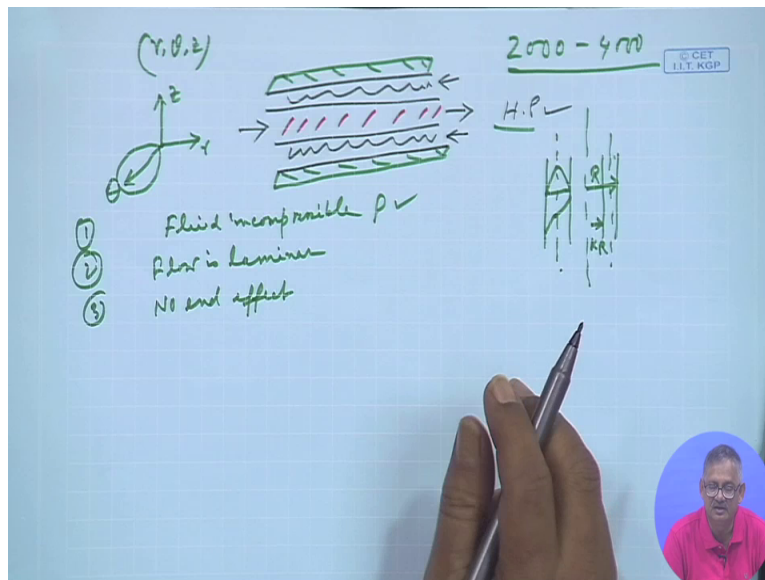 (r, θ, z)
2000 - 4000
© CET
I.I.T. KGP
z
r
θ
H.P ✓
R
KR
① Fluid incompressible ρ ✓
② Flow is Laminar
③ No end effect